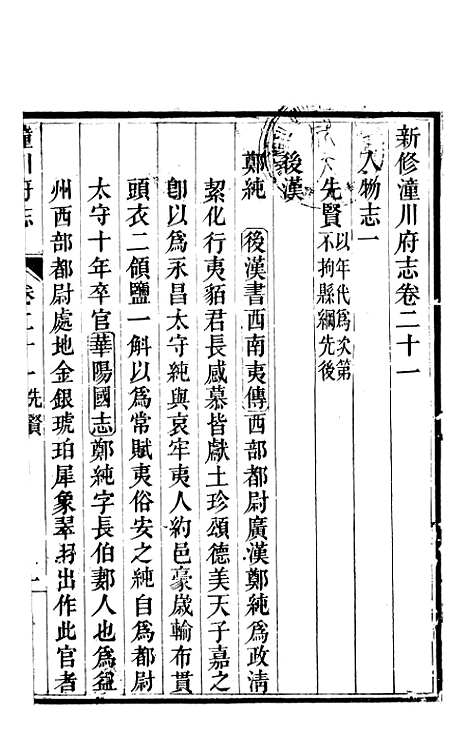 新修潼川府志卷二十一
人物志一
先賢以年代為次第不拘縣綱先後
後漢
鄭純 後漢書西南夷傳西部都尉廣漢鄭純為政清
絜化行夷貊君長感慕皆獻土珍頌德美天子嘉之
卽以為永昌太守純與哀牢夷人約邑豪歲輸布貫
頭衣二領鹽一斛以為常賦夷俗安之純自為都尉
太守十年卒官華陽國志鄭純字長伯郪人也為益
州西部都尉處地金銀琥珀犀象翠羽出作此官者
潼川府志 卷二十一先賢 一